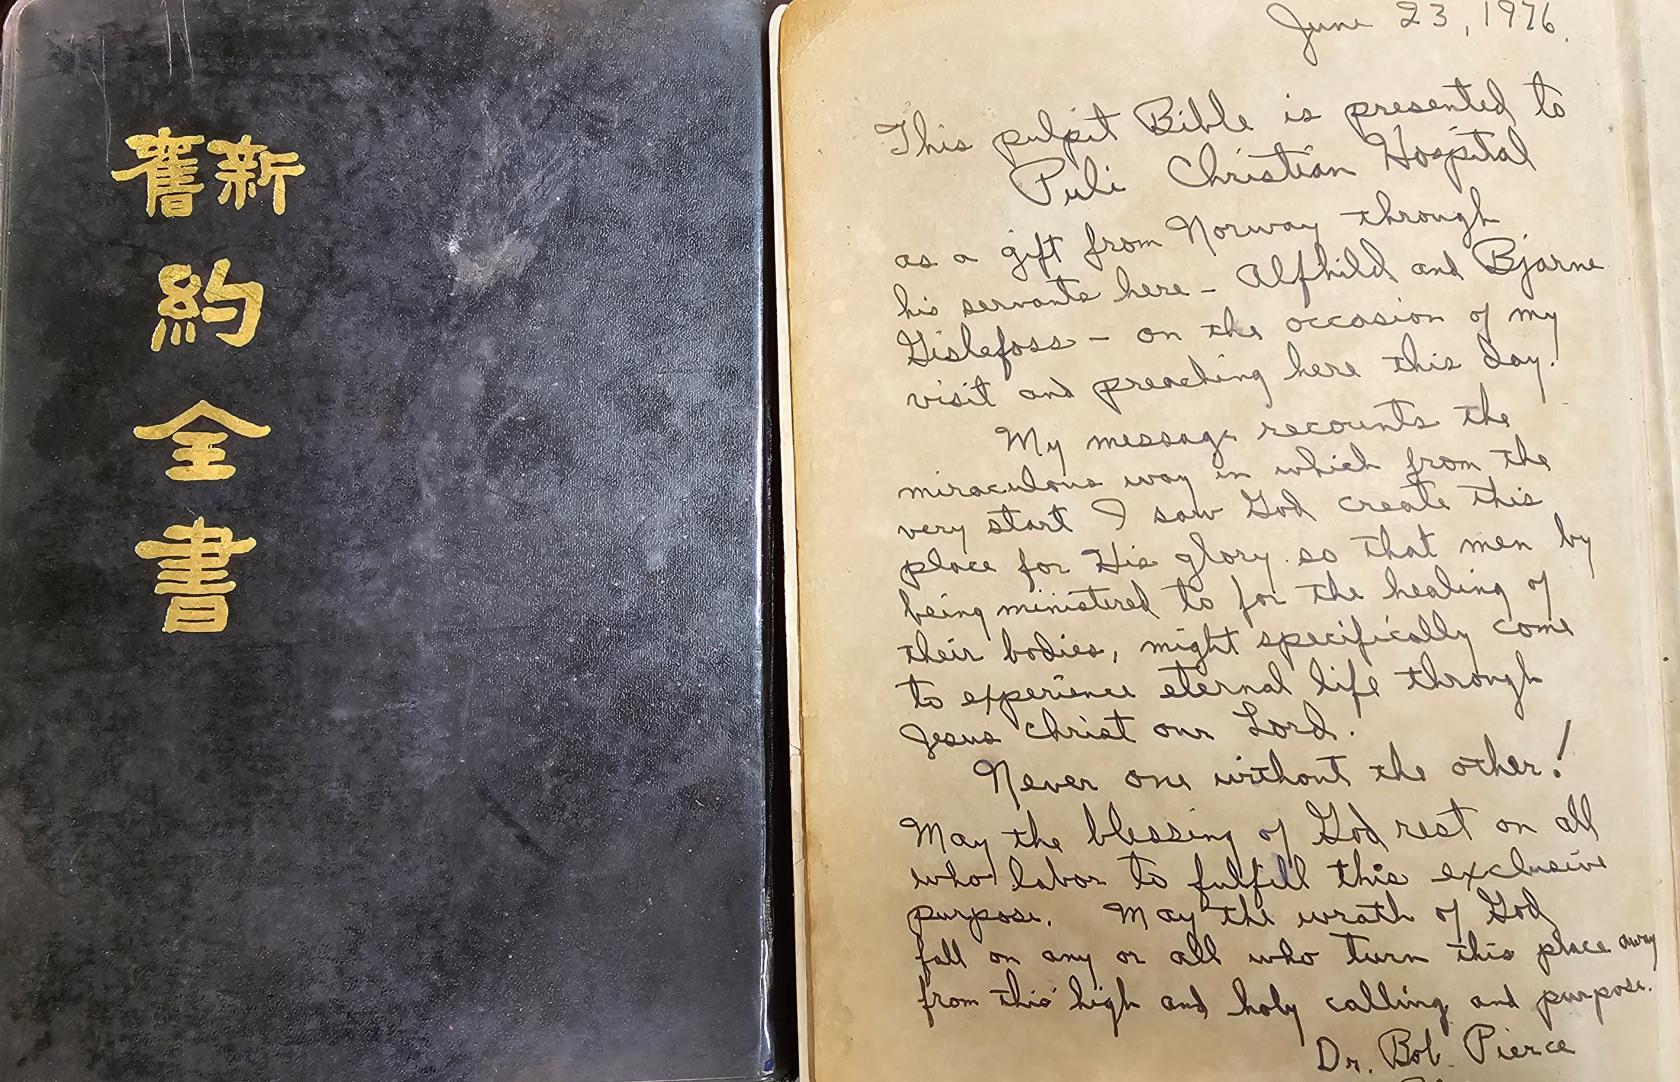 新舊
約
全
書
June 23, 1976.
This pulpit Bible is presented to
Puli Christian Hospital
as a gift from Norway through
his servants here - Alfhild and Bjarne
Gislefoss - on the occasion of my
visit and preaching here this day.
My message recounts the
miraculous way in which from the
very start I saw God create this
place for His glory so that men by
being ministered to for the healing of
their bodies, might specifically come
to experience eternal life through
Jesus Christ our Lord.
Never one without the other!
May the blessing of God rest on all
who labor to fulfill this exclusive
purpose. May the wrath of God
fall on any or all who turn this place away
from this high and holy calling and purpose.
Dr. Bob Pierce